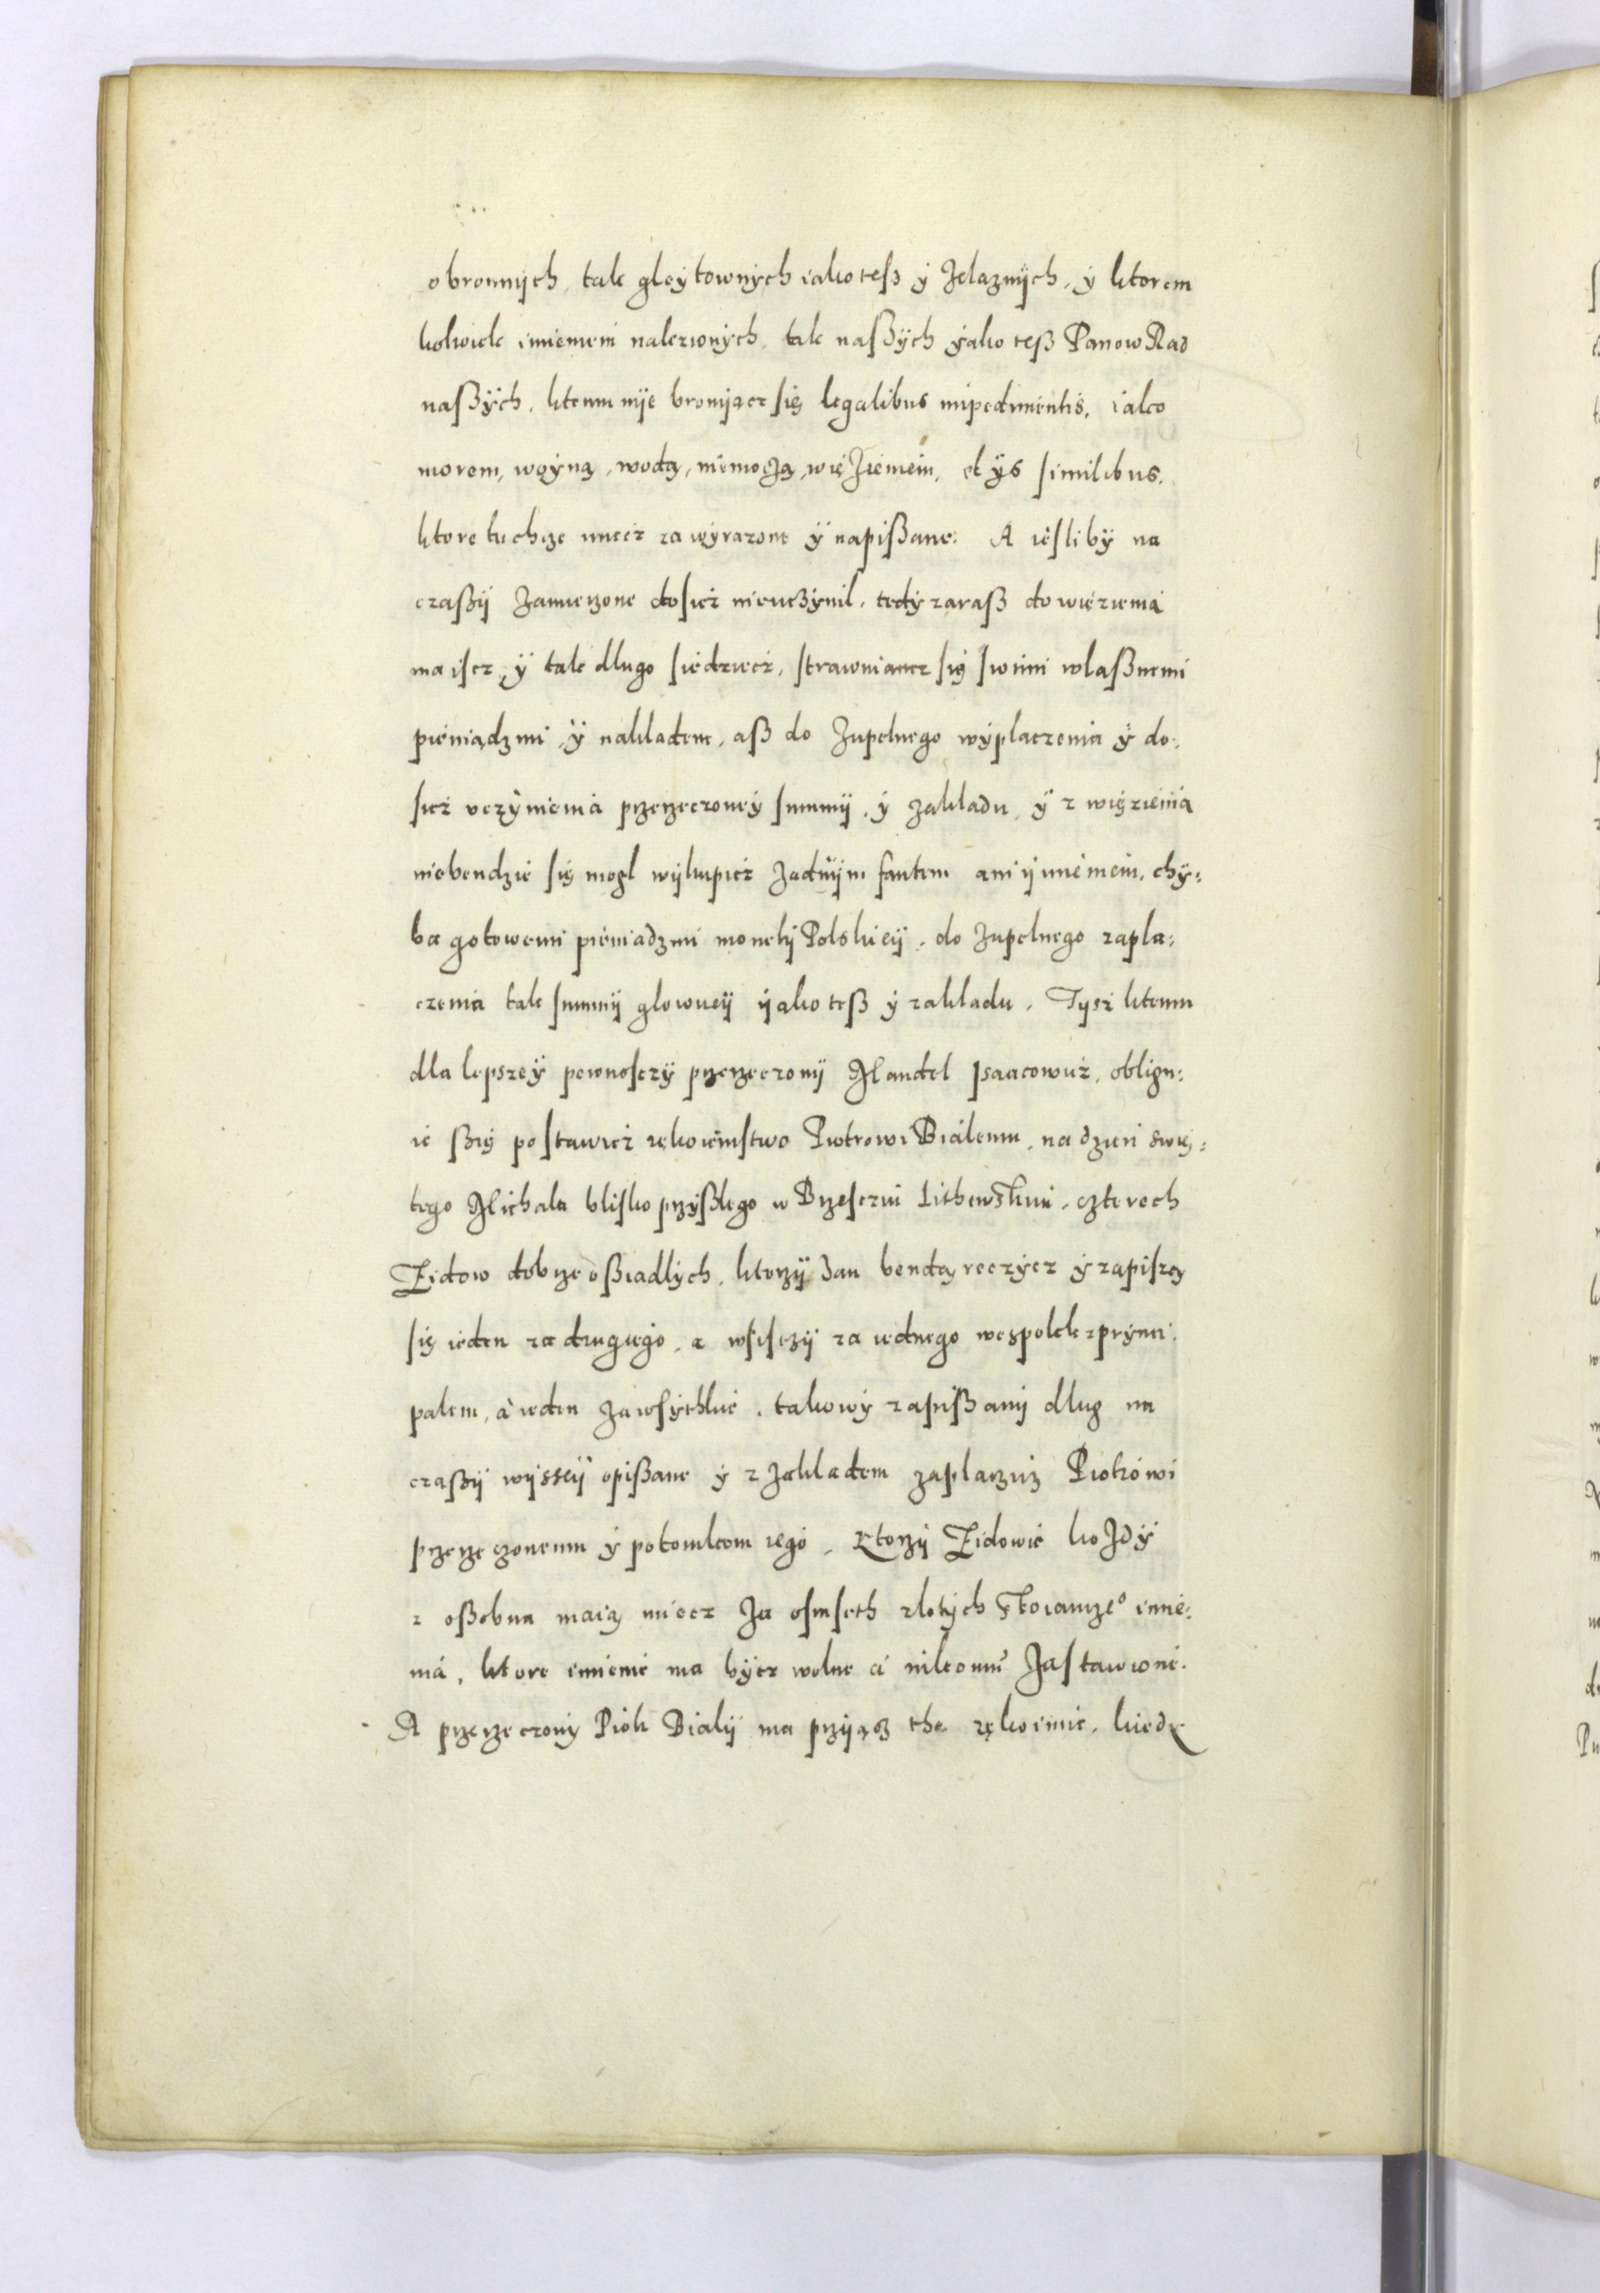 obronnÿch, tak gleÿtownÿch iako tesz ÿ Zelaznÿch, ÿ ktorem
kolwiek imieniem nalezionÿch, tak naßÿch ÿako teß Panow Rad
naßÿch, ktemu nÿe broniącz się legalibus impedimentis, iako
morem, woÿną, wodą, niemoczą, więzieniem, et ÿs similibus,
ktore tu chcze miecz za wÿrazone ÿ napißane. A iesliby na
czaßÿ zamierzone dosicz nieuczÿnil, tedÿ zaraß do więzienia
ma iscz, ÿ tak dlugo siedziecz, strawuiancz się swimi wlaßnemi
pieniądzmi ÿ nakladem, aß do zupelnego wÿplaczenia ÿ do,
sicz uczÿnienia przerzeczoneÿ summÿ, ÿ zakladu, ÿ z więzienia
niebendzie się mogl wÿkupicz zadnÿm fantem ani ÿmieniem, chÿ,
ba gotowemi pieniadzmi monetÿ Polskieÿ, do zupelnego zapla,
czenia tak summÿ glowneÿ ÿako teß ÿ zakladu. Tysz ktemu
dla lepszeÿ pewnosczÿ przerzeczonÿ Mandel Isaacowicz, obligu,
ie ßię postawicz rękoiemstwo Piotrowi Bialemu, na dzien swię,
tego Michala blisko przÿßlego w Brzesciu Lithewskim, czterech
Zidow dobrze oßiadlÿch, ktorzÿ zan bendą reczÿcz ÿ zapiszą
się ieden za drugiego, a wsisczÿ za iednego wespolek z prÿnci,
palem, a ieden za wsÿthkie, takowÿ zapißanÿ dlug na
czaßÿ wÿsseÿ opißane ÿ z zakladem zaplaczicz Piotrowi
przerzeczonemu ÿ potomkom iego. Ktorzÿ Zidowie kozdÿ
z oßobna maią miecz za osmseth zlotÿch stoiancze° imie,
nia, ktore imienie ma bÿcz wolne a nikomu zastawione.
A przerzeczonÿ Piotr Bialÿ ma przÿiącz the rękoimie, kiedy